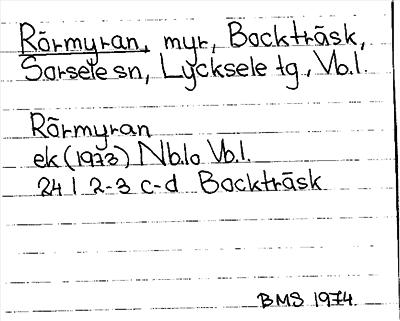 Rörmyran, myr, Bockträsk,
Sorsele sn, Lycksele tg., Vb.l.
Rörmyran
ek (1973) Nb.lo Vb.l.
24 I 2-3 c-d Bockträsk
BMS 1974.